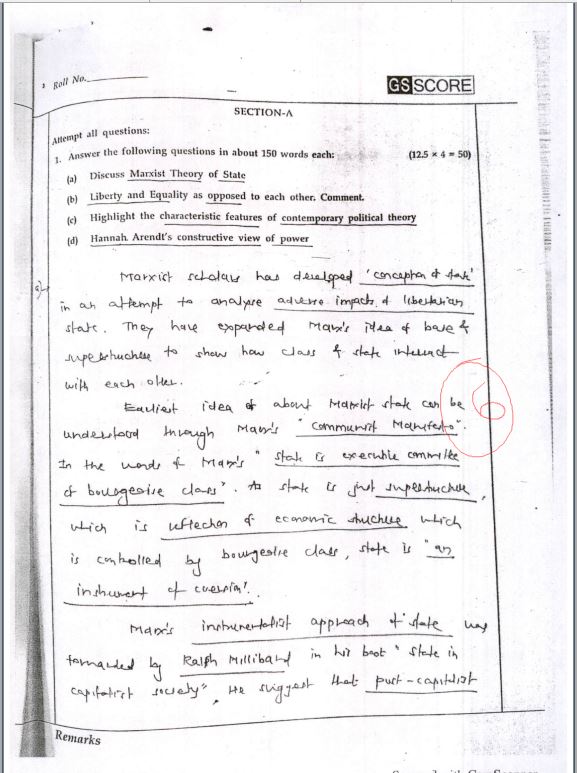 Roll No.
GSSCORE
SECTION-A
Attempt all questions:
1. Answer the following questions in about 150 words each: (12.5 × 4 = 50)
(a) Discuss Marxist Theory of State
(b) Liberty and Equality as opposed to each other. Comment.
(c) Highlight the characteristic features of contemporary political theory
(d) Hannah Arendt's constructive view of power
Marxist scholars has developed 'conception of state'
in an attempt to analyse adverse impacts of libertarian
state. They have expanded Marx's idea of base &
superstructure to show how class & state interact
with each other.
Earliest idea of about Marxist state can be
6
understood through Marx's "Communist Manifesto".
In the words of Marx's "state is executive committee
of bourgeoise class". As state is just superstructure,
which is reflection of economic structure which
is controlled by bourgeoise class, state is "an
instrument of coersion".
Marx's instrumentalist approach of state was
forwarded by Ralph Milliband in his book "State in
capitalist society". He suggest that post-capitalist
Remarks